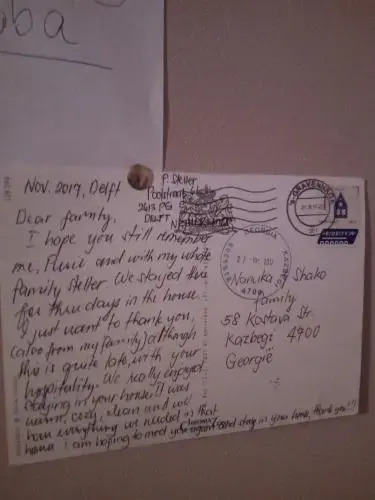 oba
Nov. 2017, Delft
Dear family,
I hope you still remember
me, and with my whole
family Steller. We stayed
for three days in the house.
I just want to thank you,
(also from my family) although
this is quite late, with your
hospitality. We really enjoyed
staying in your house. It was
warm, cozy, clean and we
have everything we needed in that
home. I am hoping to meet you again and stay in your home, thank you!!
P. Steller
2613 PG
DELFT
'S-GRAVENHAGE
PRIORITY
GEORGIA KAZBEGI
4700
Nanuka Shako
family
58 Kostava Str.
Kazbegi 4700
Georgië